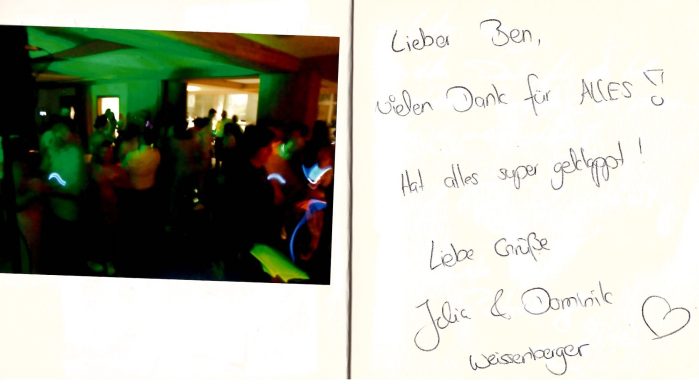 Lieber Ben,
vielen Dank für ALLES!
Hat alles super geklappt!
Liebe Grüße
Julia & Dominik
Weissenberger